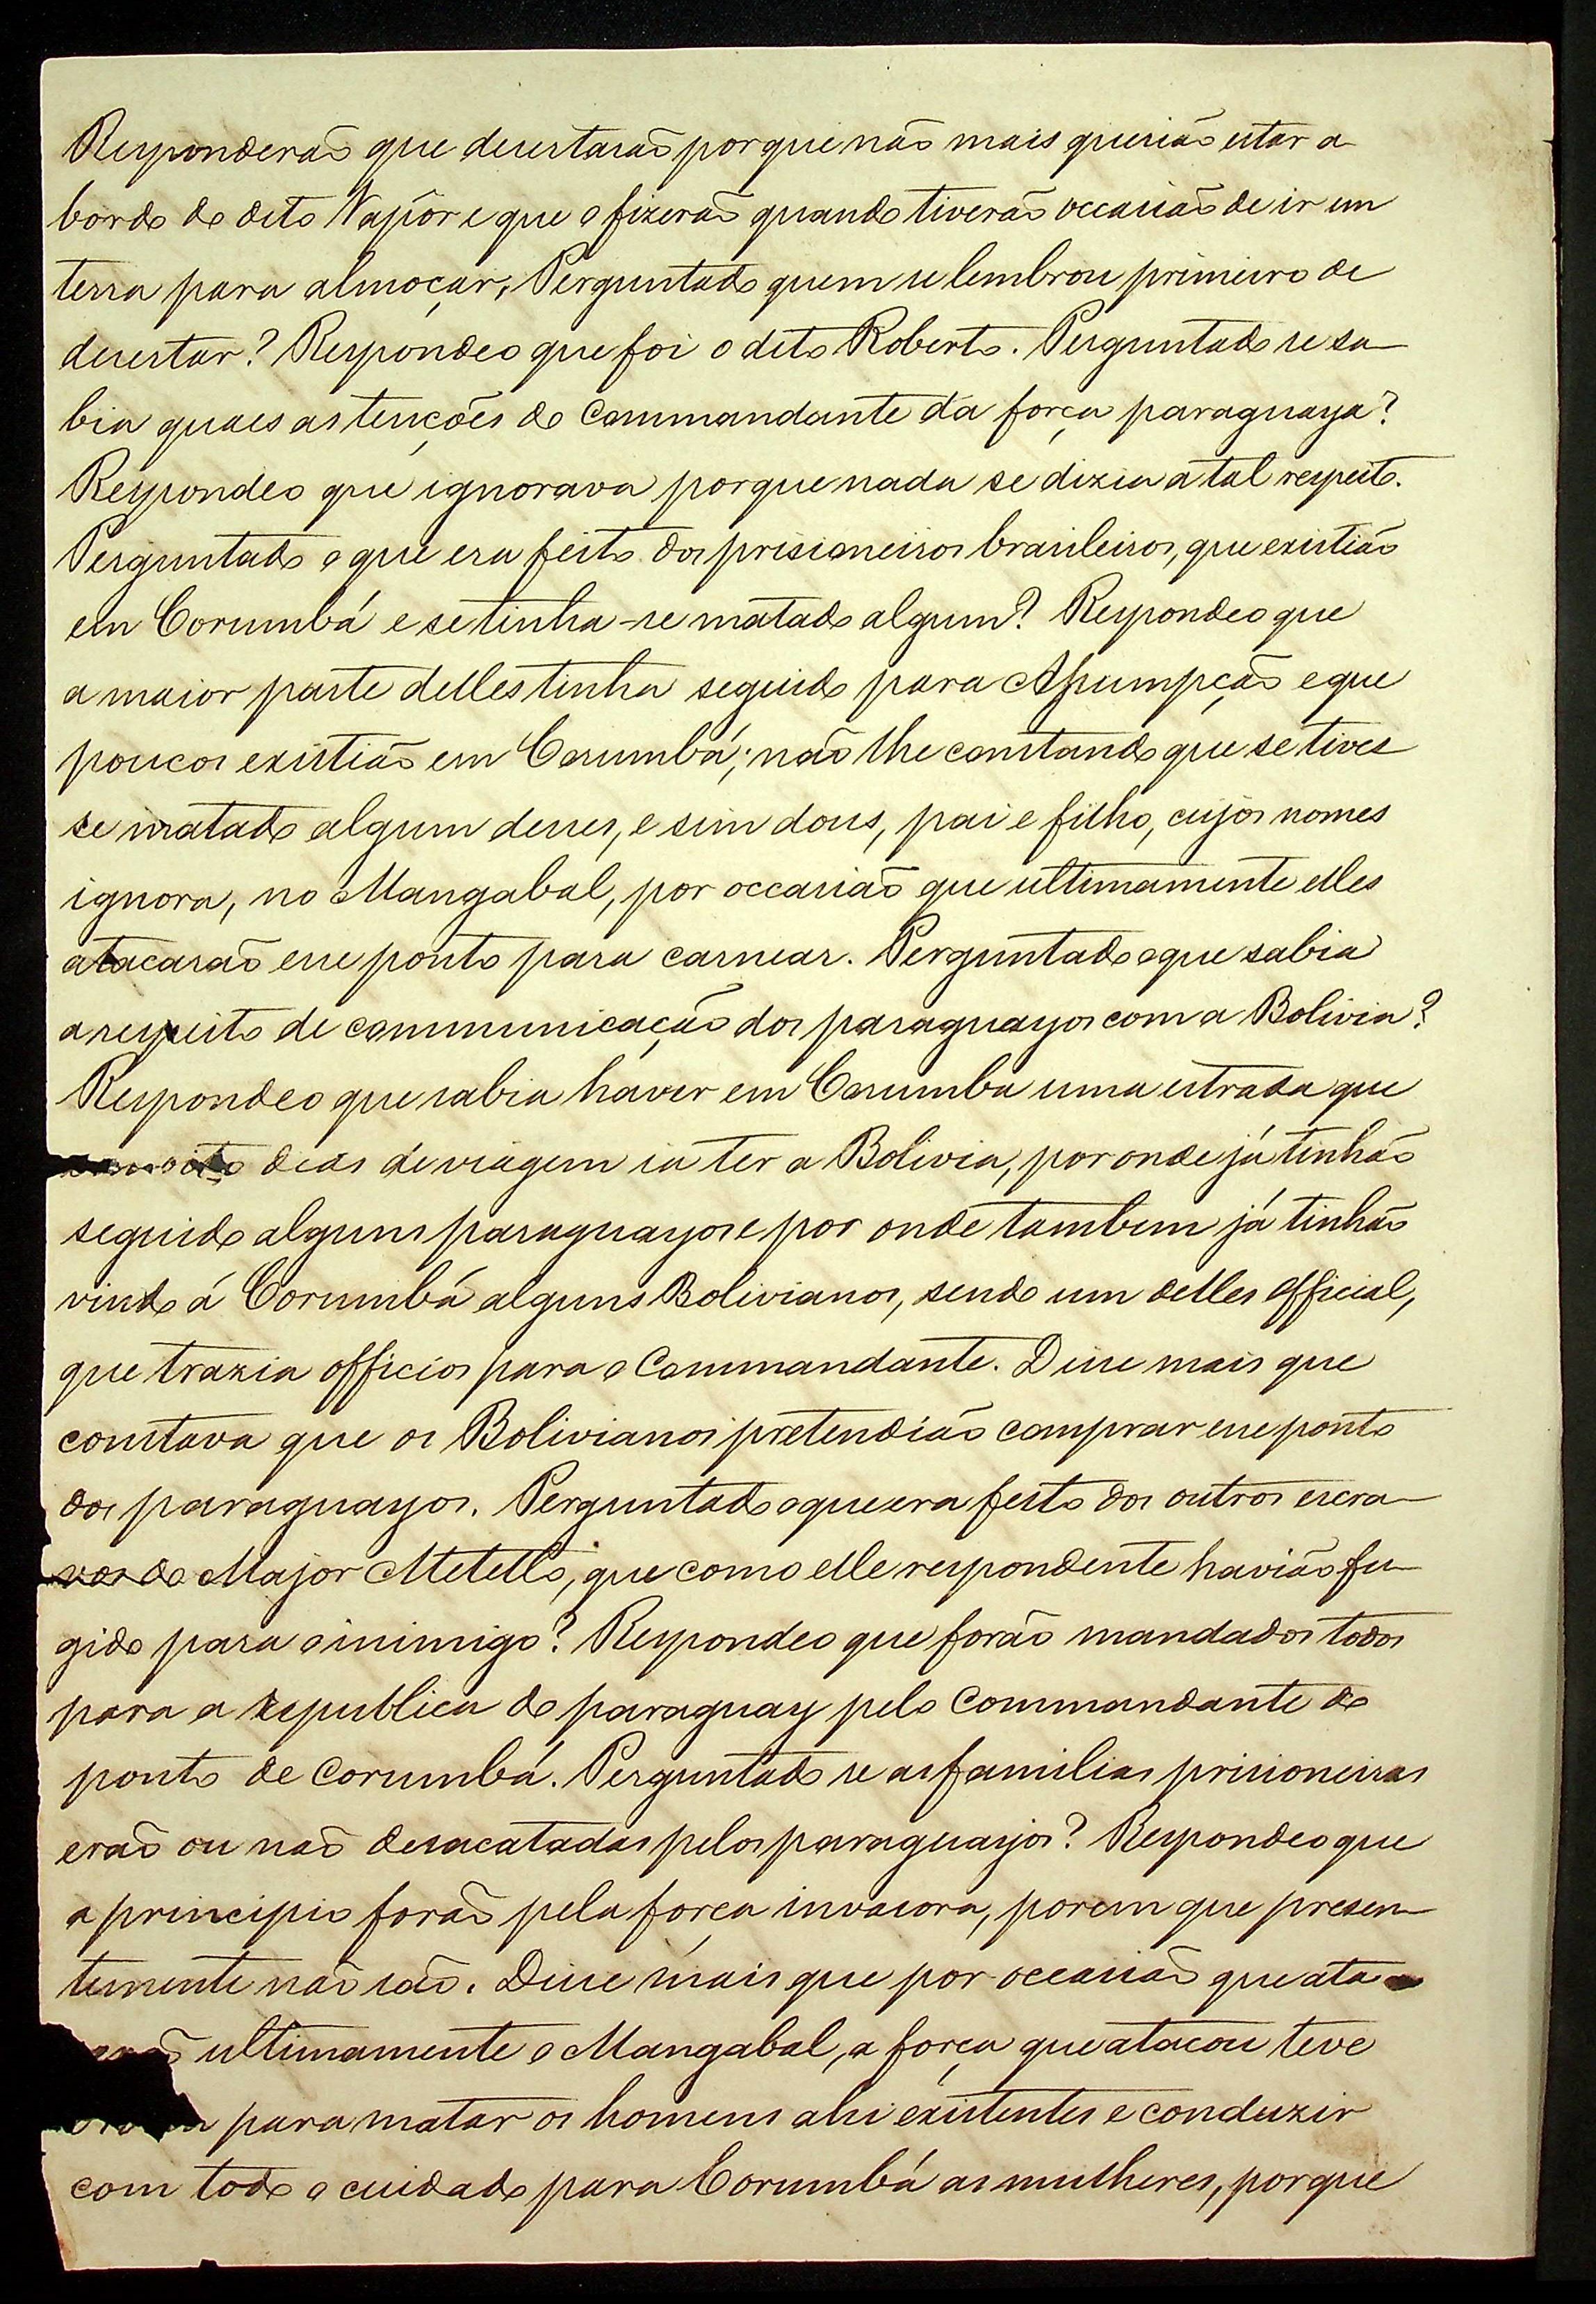 Responderão que desertarão porque não mais querião estar a
bordo do dito Vapôr e que o fizerão quando tiverão occasião de ir em
terra para almoçar; Perguntado quem se lembrou primeiro de
desertar? Respondeo que foi o dito Roberto. Perguntado se sa
bia quaes as tenções do Commandante da força paraguaya?
Respondeo que ignorava porque nada se dizia a tal respeito.
Perguntado o que era feito dos prisioneiros brasileiros, que existião
em Corumbá e se tinha-se matado algum? Respondeo que
a maior parte delles tinha seguido para Assumpção e que
poucos existião em Corumbá; não lhe constando que se tives
se matado algum desses, e sim dous, pai e filho, cujos nomes
ignora, no Mangabal, por occasião que ultimamente elles
atacarão esse ponto para carnear. Perguntado o que sabia
a respeito de communicação dos paraguayos com a Bolivia?
Respondeo que sabia haver em Corumba uma estrada que
oito dias de viagem ia ter a Bolivia, por onde já tinhão
seguido alguns paraguayos e por onde tambem já tinhão
vindo á Corumbá alguns Bolivianos, sendo um delles Official,
que trazia officios para o Commandante. Disse mais que
constava que os Bolivianos pretendião comprar esse ponto
dos paraguayos. Perguntado o que era feito dos outros escra
vos do Major Metello, que como elle respondente havião fu
gido para o inimigo? Respondeo que forão mandados todos
para a Republica do paraguay pelo Commandante do
ponto de Corumbá. Perguntado se as familias prisioneiras
erão ou não desacatadas pelos paraguayos? Respondeo que
a principio forão pela força invasora, porem que presen
temente não são. Disse mais que por occasião que ata
ultimamente o Mangabal, a força que atacou teve
para matar os homens ahi existentes e conduzir
com todo o cuidado para Corumbá as mulheres, porque